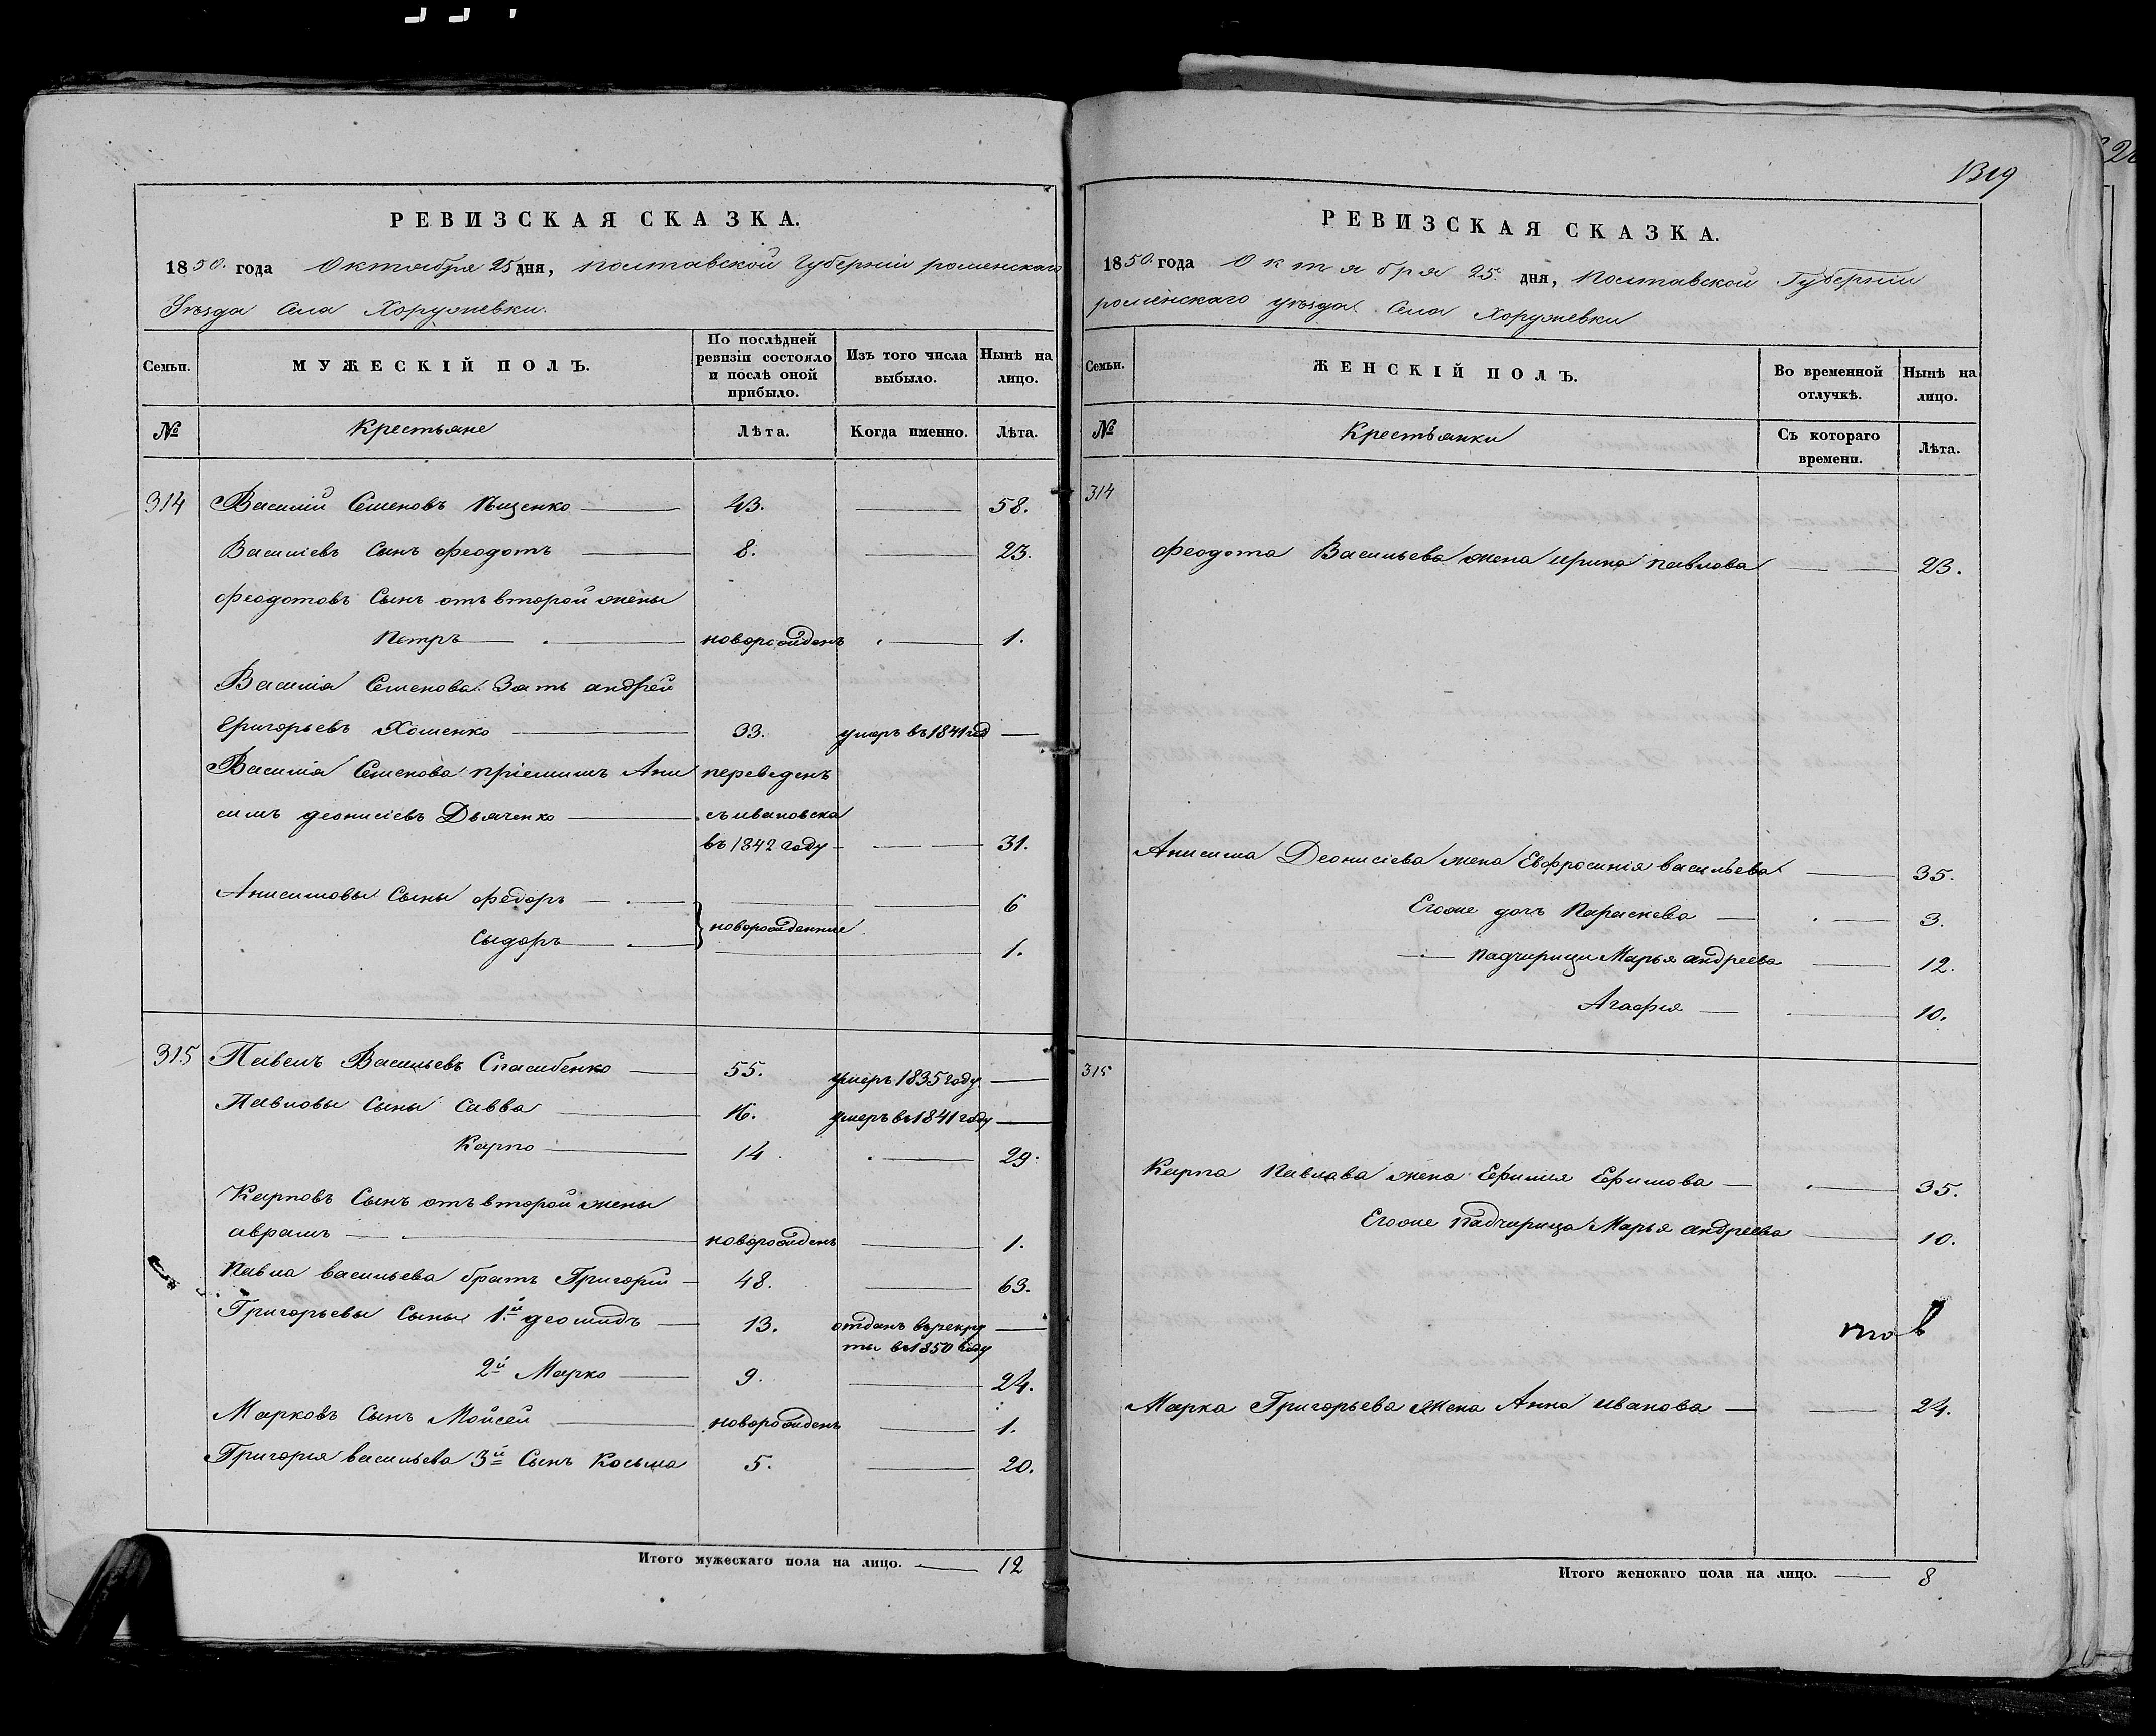 РЕВИЗСКАЯ СКАЗКА.
1850. года Октября 25 дня, полтавской губерніи роменскаго
Уѣзда Села Хоружевки.
Семьи.
МУЖЕСКІЙ ПОЛЪ.
По послѣдней ревизіи состояло и послѣ оной прибыло.
Изъ того числа выбыло.
Нынѣ на лицо.
№
Крестьяне
Лѣта.
Когда именно.
Лѣта.
314 Василій Семеновъ Пищенко 43. 58.
Василіевъ Сынъ Феодотъ 8. 23.
Феодотовъ Сынъ отъ второй жены
Петръ новорожденъ 1.
Василія Семенова Зять андрей
Григорьевъ Хоменко 33. умеръ въ 1841 год
Василія Семенова пріемишъ Ани переведенъ
симъ деонисіевъ Дьяченко съ ивановска
въ 1842 году 31.
Анисимовы Сыны Федоръ 6
новорожденные
Сыдоръ 1.
315 Павелъ Васильевъ Спасибенко 55. умеръ 1835 году
Павловы Сыны Савва 16. умеръ въ 1841 году
Карпо 14 29.
Карповъ Сынъ отъ второй жены
аврамъ новорожденъ 1.
Павла васильева братъ Григорій 48. 63.
Григорьевы Сыны 1й деомидъ 13. отданъ в рекру
ты въ 1850 году
2й Марко 9. 24.
Марковъ Сынъ Мойсей новорожденъ 1.
Григорія васильева 3й Сынъ Косьма 5. 20.
Итого мужескаго пола на лицо. 12
1319
РЕВИЗСКАЯ СКАЗКА.
1850. года Октября 25. дня, Полтавской Губерніи
роменскаго уѣзда Села Хоружевки
Семьи.
ЖЕНСКІЙ ПОЛЪ.
Во временной отлучкѣ.
Нынѣ на лицо.
№
Крестьянки
Съ котораго времени.
Лѣта.
314
Феодота Васильева жена Ирина павлова 23.
Анисима Деонисіева жена Евфросинія васильева 35.
Егоже дочь Параскева 3.
падчирици Марья андреева 12.
Агафія 10.
315
Карпа Павлава жена Ефимия Ефимова 35.
Егоже падчирица Марья андреева 10.
Марка Григорьева жена Анна иванова 24.
Итого женскаго пола на лицо. 8